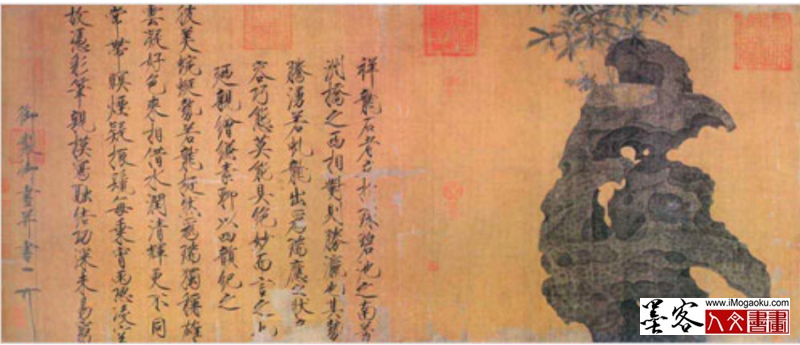 祥龍石者立於環碧池之南芳
洲橋之西相對則勝瀛也其勢
騰湧若虬龍出為瑞應之狀奇
容巧態莫能具絕妙而言之也
廼親繪縑素聊以四韻紀之
彼美蜿蜒勢若龍挺然為瑞獨稱雄
雲凝好色來相借水潤清輝更不同
常帶暝煙疑振鬣每乘宵雨恐凌空
故憑彩筆親模寫融結功深未易窮
御製御畫并書
墨客
www.iMogaoku.com
人文書畫